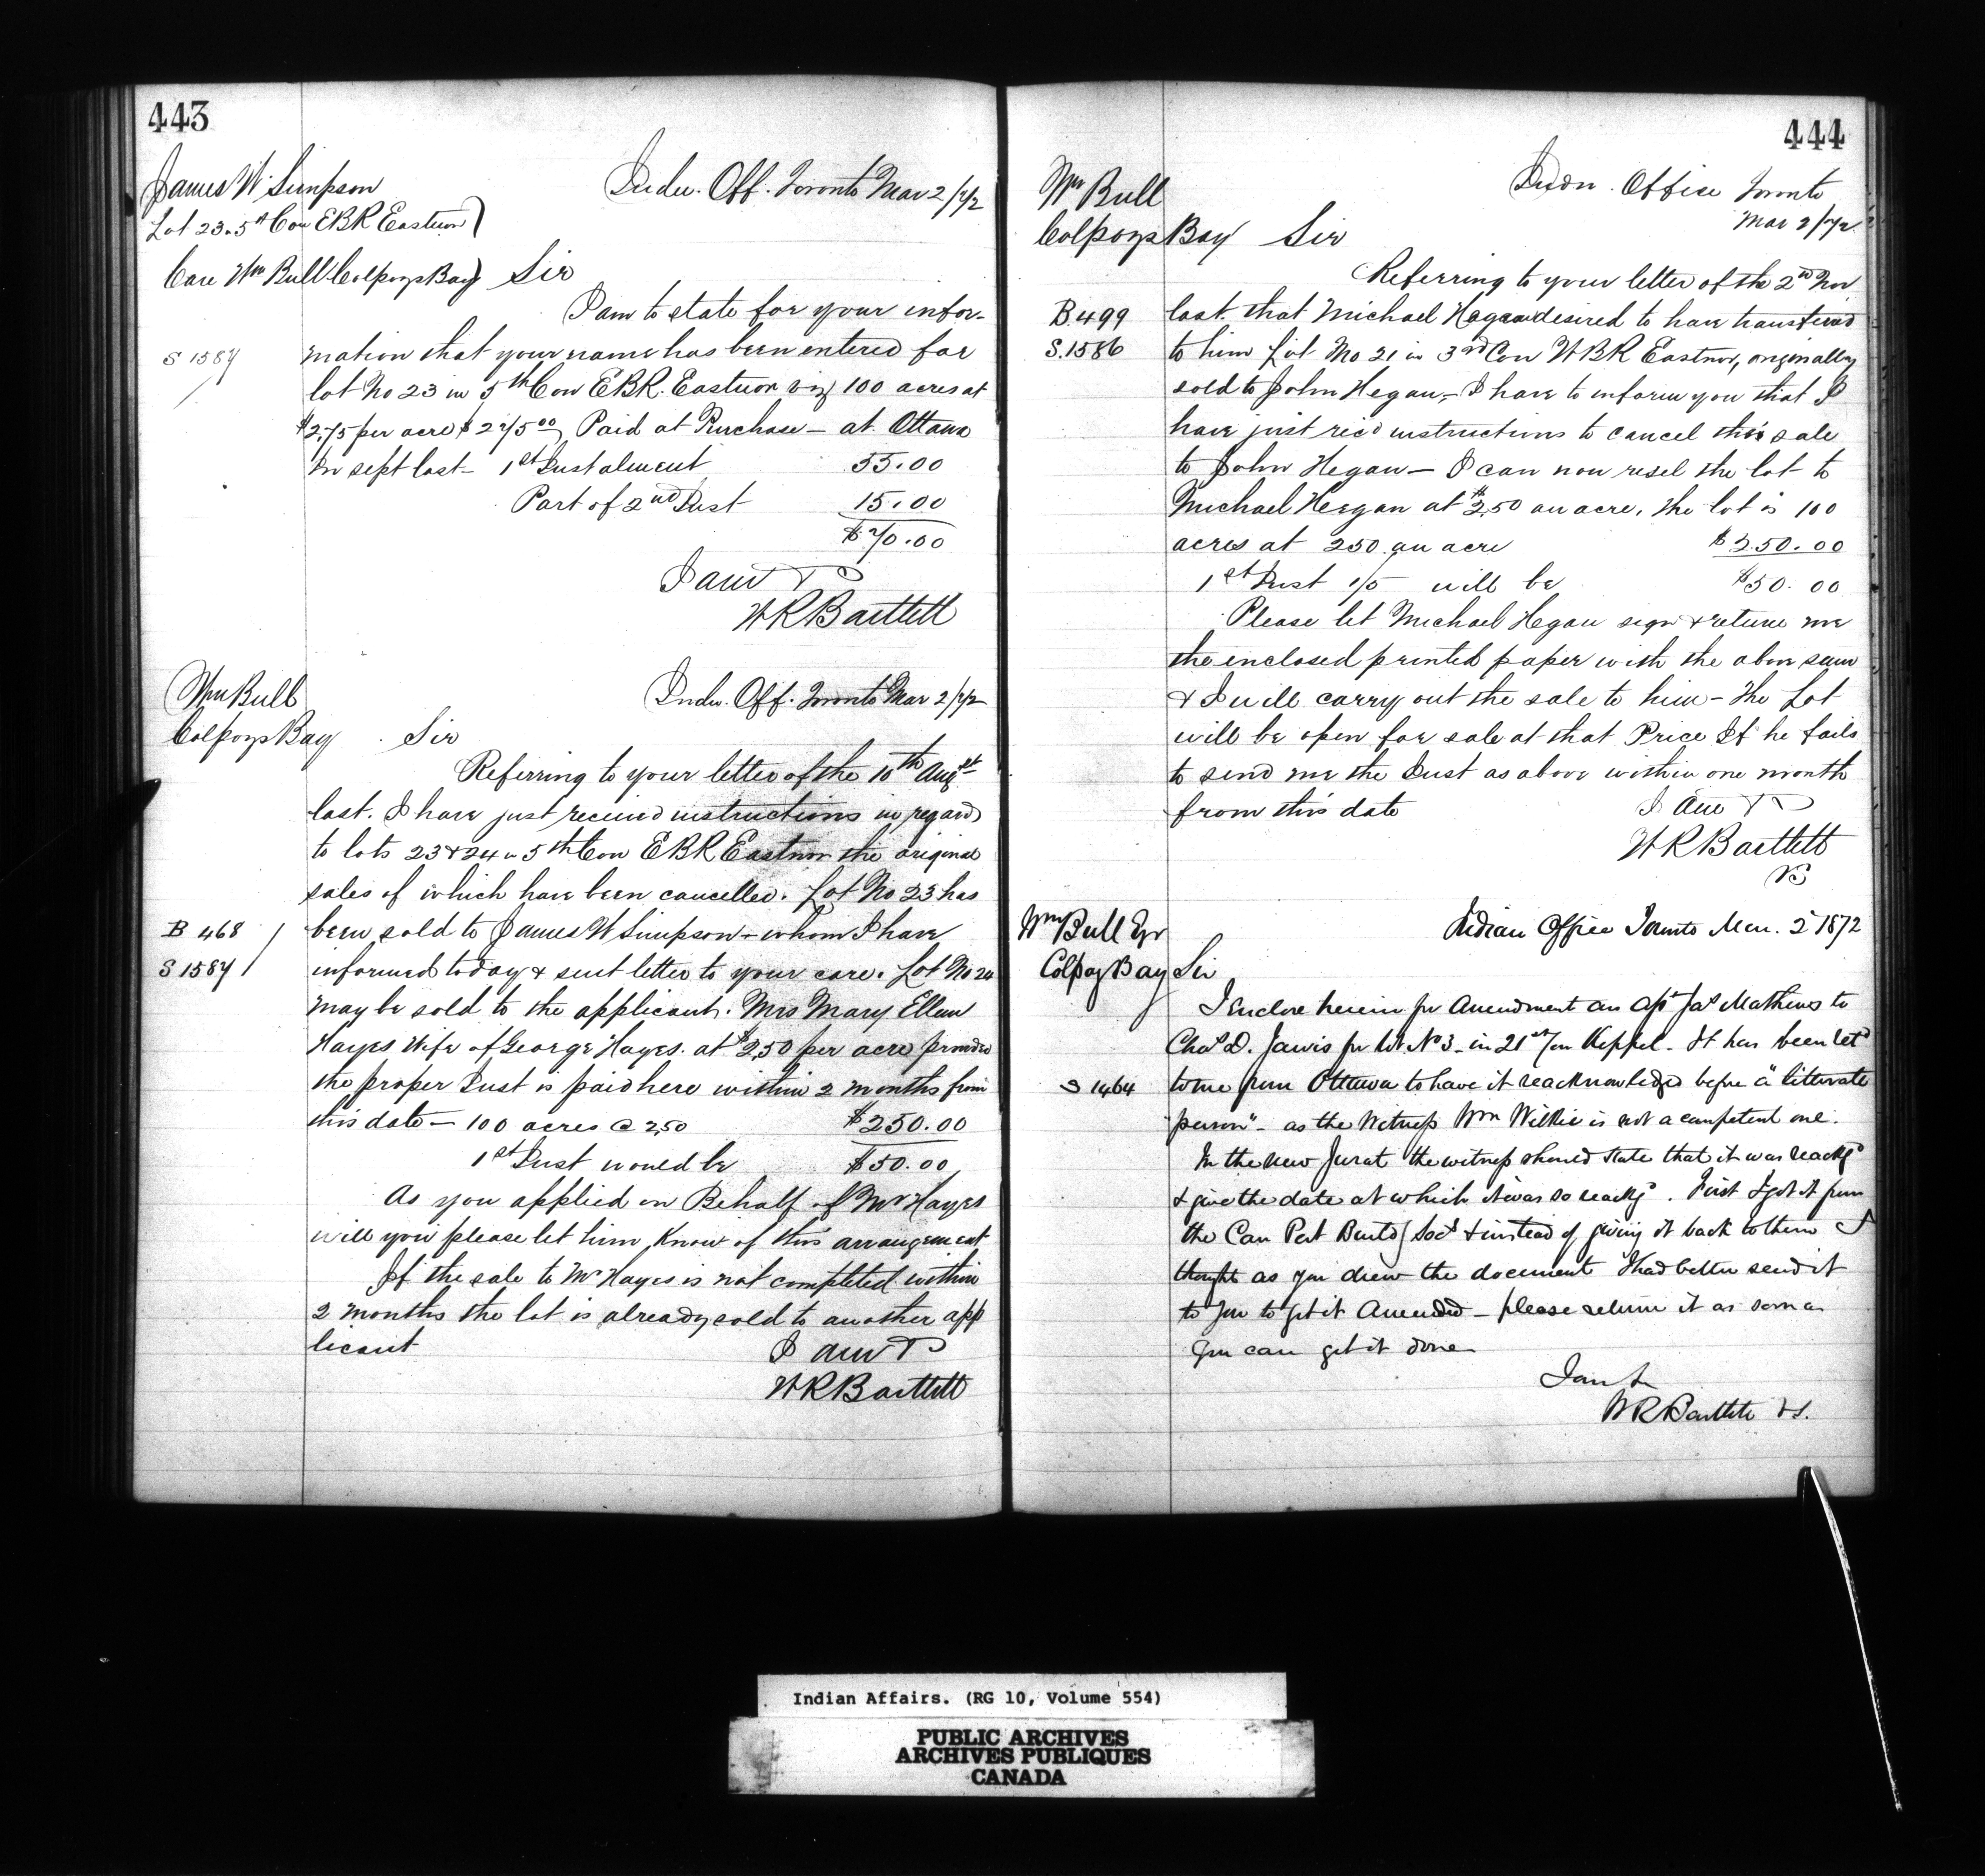 443
James W. Simpson
Indn. Off. Toronto Mar 2/72
Lot 23. 5th Con EBR Eastnor)
Care Wm Bull Colpoys Bay) Sir
I am to state for your infor-
S 1587 mation that your name has been entered for
lot No 23 in 5th Con EBR. Eastnor viz 100 acres at
$2.75 per acre $275.00 Paid at Purchase - at Ottawa
in Sept last - 1st Instalment 55.00
Part of 2nd Inst 15.00
$70.00
I am
WRBartlett
Wm Bull
Indn. Off. Toronto Mar 2/72
Colpoys Bay Sir
Referring to your letter of the 10th Augst
last. I have just received instructions in regard
to lots 23 & 24 in 5th Con EBR Eastnor the original
sales of which have been cancelled. Lot No 23 has
B 468 been sold to James W Simpson - whom I have
S 1587 informed today & sent letter to your care. Lot No 24
may be sold to the applicant. Mrs Mary Ellen
Hayes Wife of George Hayes. at $2,50 per acre provided
the proper Inst is paid here within 2 months from
this date - 100 acres @ 2,50 $250.00
1st Inst would be $50.00
As you applied on Behalf of Mr Hayes
will you please let him know of this arrangement
If the sale to Mr Hayes is not completed within
2 months the lot is already sold to another app
licant I am
WRBartlett
444
Wm Bull
Indn. Office Toronto
Mar 2/72
Colpoys Bay Sir
Referring to your letter of the 2nd Nov
B.499 last. that Michael Hegan desired to have transferred
S.1586 to him Lot No 21 in 3rd Con WBR Eastnor, originally
sold to John Hegan, - I have to inform you that I
have just recd instructions to cancel this sale
to John Hegan - I can now resel the lot to
Michael Heegan at $2.50 an acre, the lot is 100
acres at 250 an acre $250.00
1st Inst 1/5 will be $50.00
Please let Michael Hegan sign & return me
the enclosed printed paper with the above sum
& I will carry out the sale to him - The Lot
will be open for sale at that Price If he fails
to send me the Inst as above within one month
from this date I am
WRBartlett
VS
Wm Bull Eqr
Indian Office Toronto Mar. 2 1872
Colpoy Bay Sir
I enclose herein for Amendment an Apt Jas Mathews to
Chas D. Jarvis for lot No 3 - in 21st Con Keppel - It has been retd
S 1464 to me from Ottawa to have it reacknowledged before a "litterate
person" - as the Witness Wm Wilkie is not a competent one.
In the new Jurat the witness should state that it was reackgd
& give the date at which it was so reackgd. First I got it from
the Can Pert Buildg Socy & instead of giving it back to them I
thought as you drew the document I had better send it
to you to get it Amended - please return it as soon as
you can get it done
I am
WRBartlett VS.
Indian Affairs. (RG 10, Volume 554)
PUBLIC ARCHIVES
ARCHIVES PUBLIQUES
CANADA